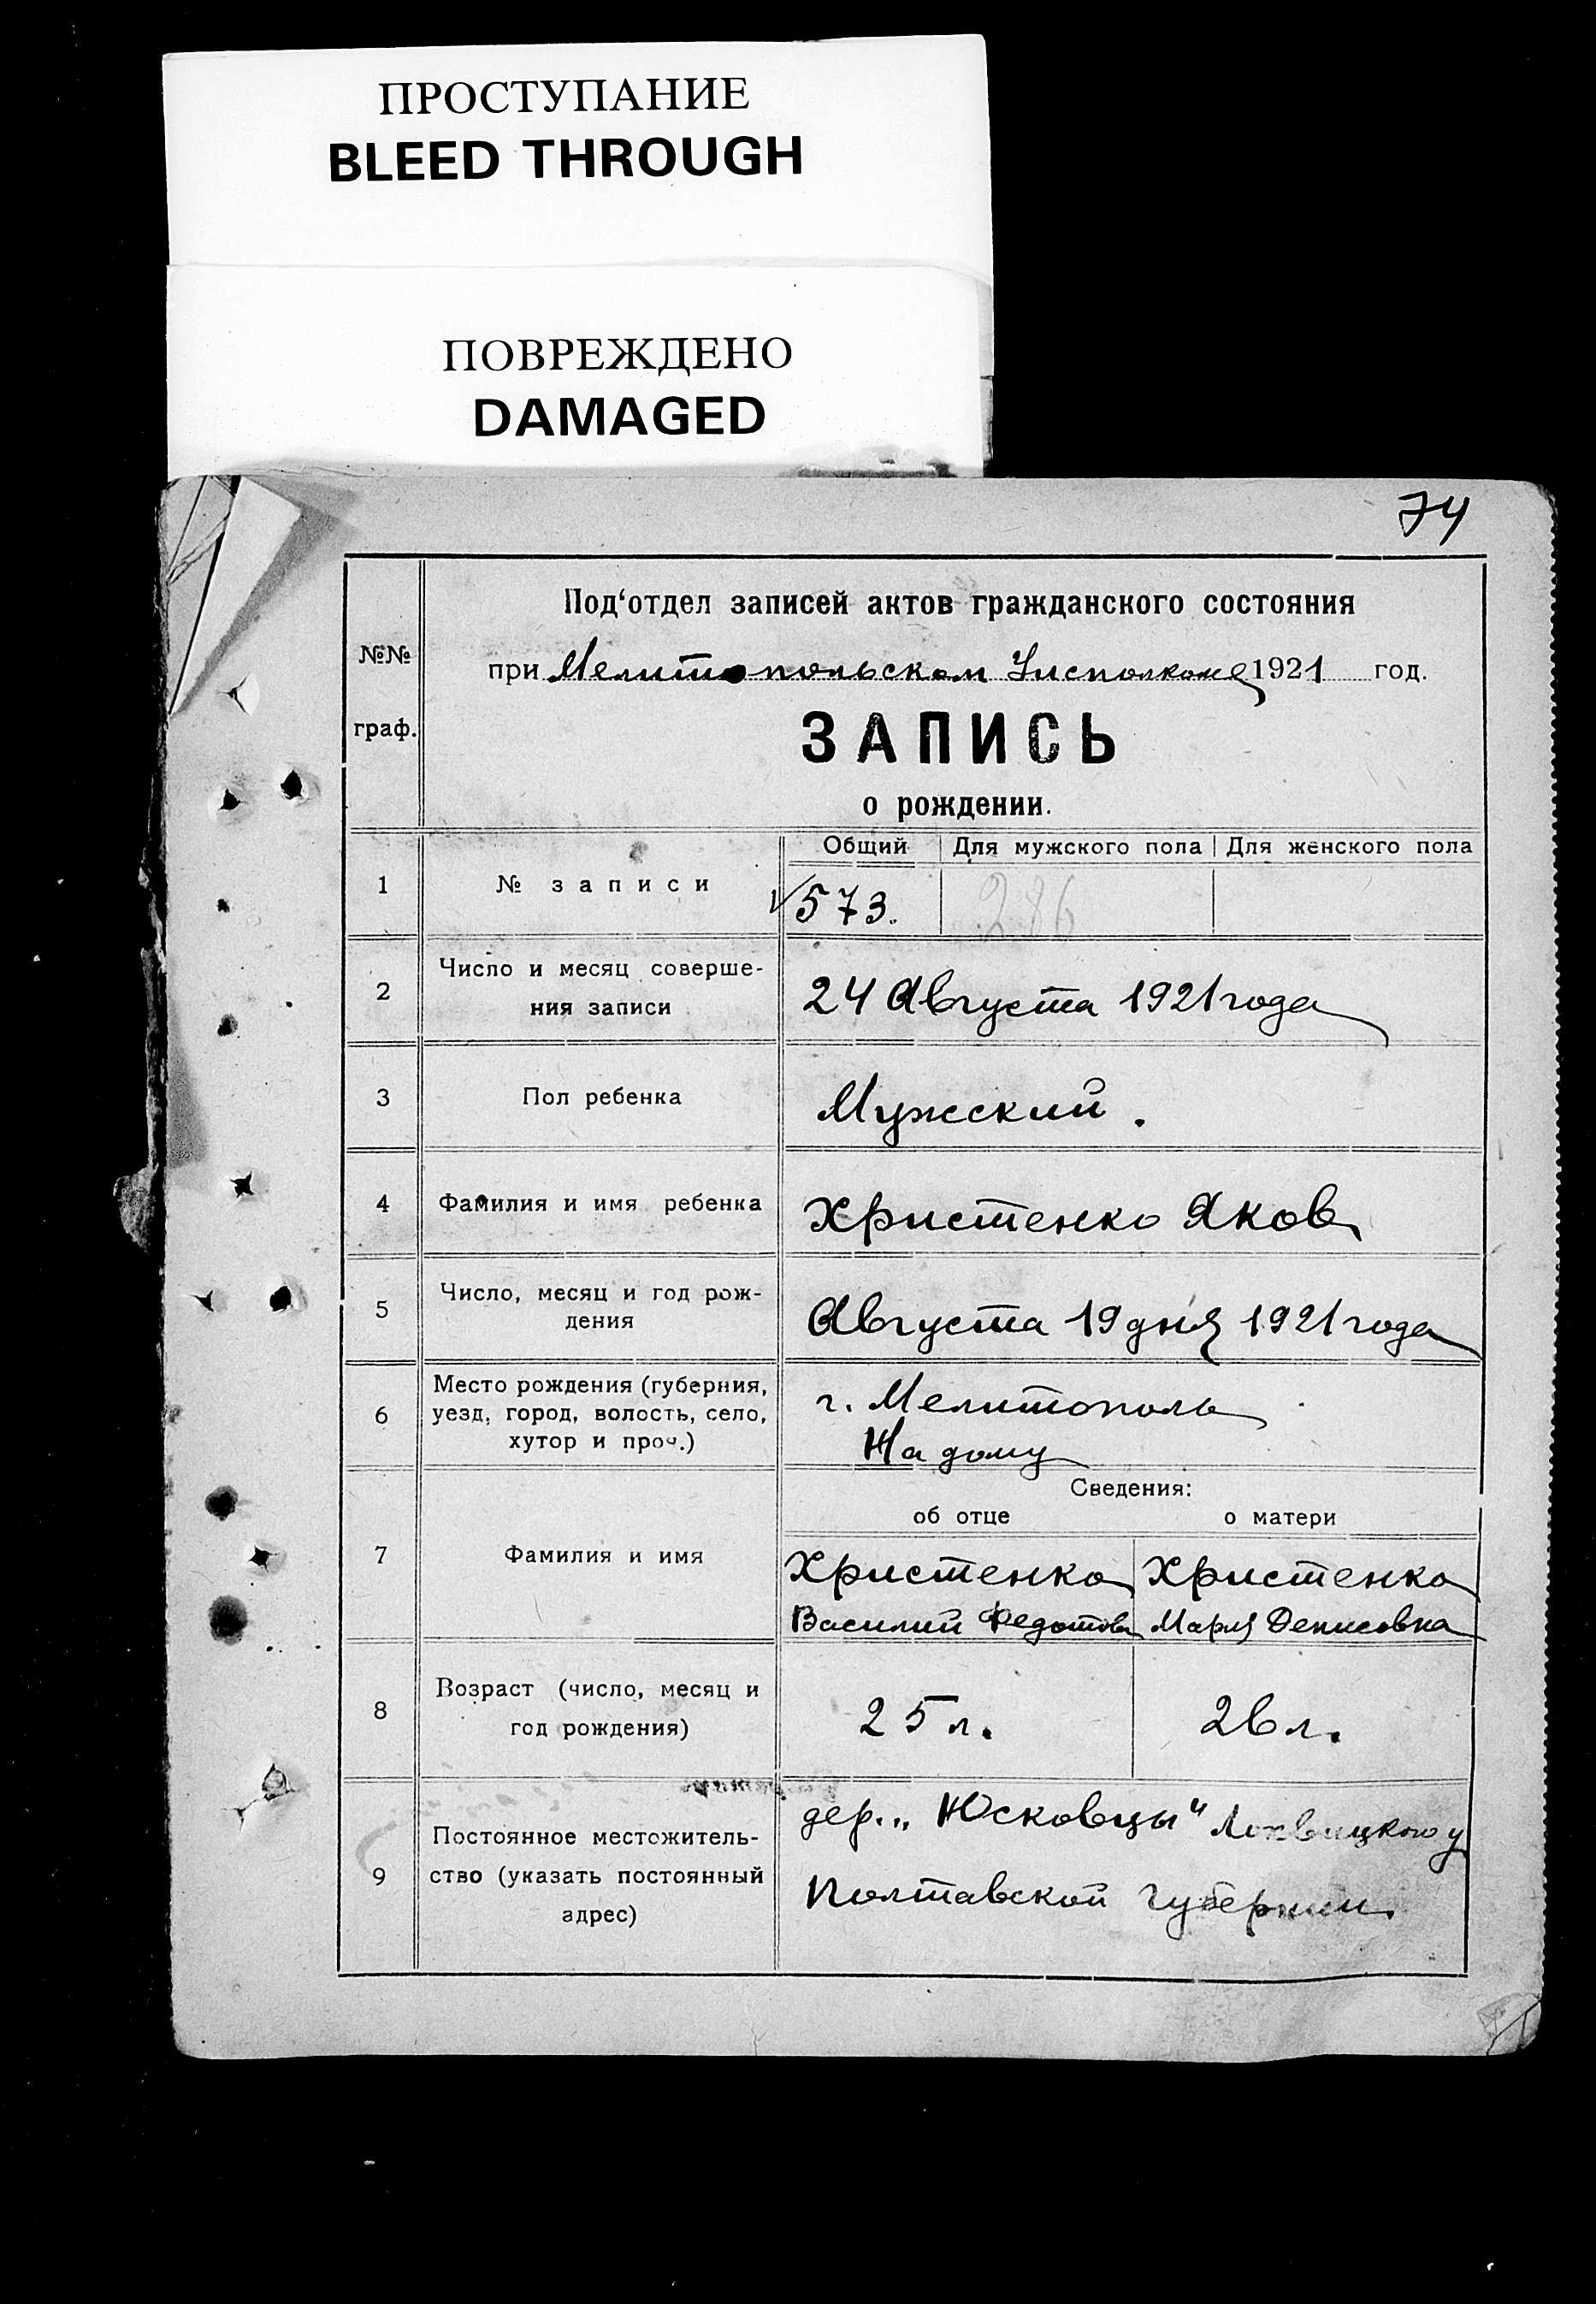 ПРОСТУПАНИЕ
BLEED THROUGH
ПОВРЕЖДЕНО
DAMAGED
74
№№
граф.
Под‘отдел записей актов гражданского состояния
при Мелитопольском Уисполкоме 1921 год.
ЗАПИСЬ
о рождении.
Общий Для мужского пола Для женского пола
1 № записи 573. 286
2 Число и месяц соверше-
ния записи
24 Августа 1921 года
3 Пол ребенка Мужский.
4 Фамилия и имя ребенка Христенко Яков
5 Число, месяц и год рож-
дения
Августа 19 дня 1921 года
6 Место рождения (губерния,
уезд, город, волость, село,
хутор и проч.)
г. Мелитополь
На дому
Сведения:
об отце о матери
7 Фамилия и имя
Христенко Христенко
Василий Федотов Мария Денисовна
8 Возраст (число, месяц и
год рождения)
25 л. 26 л.
9 Постоянное местожитель-
ство (указать постоянный
адрес)
дер. „Юсковцы" Лохвицкого у
Полтавской Губернии.